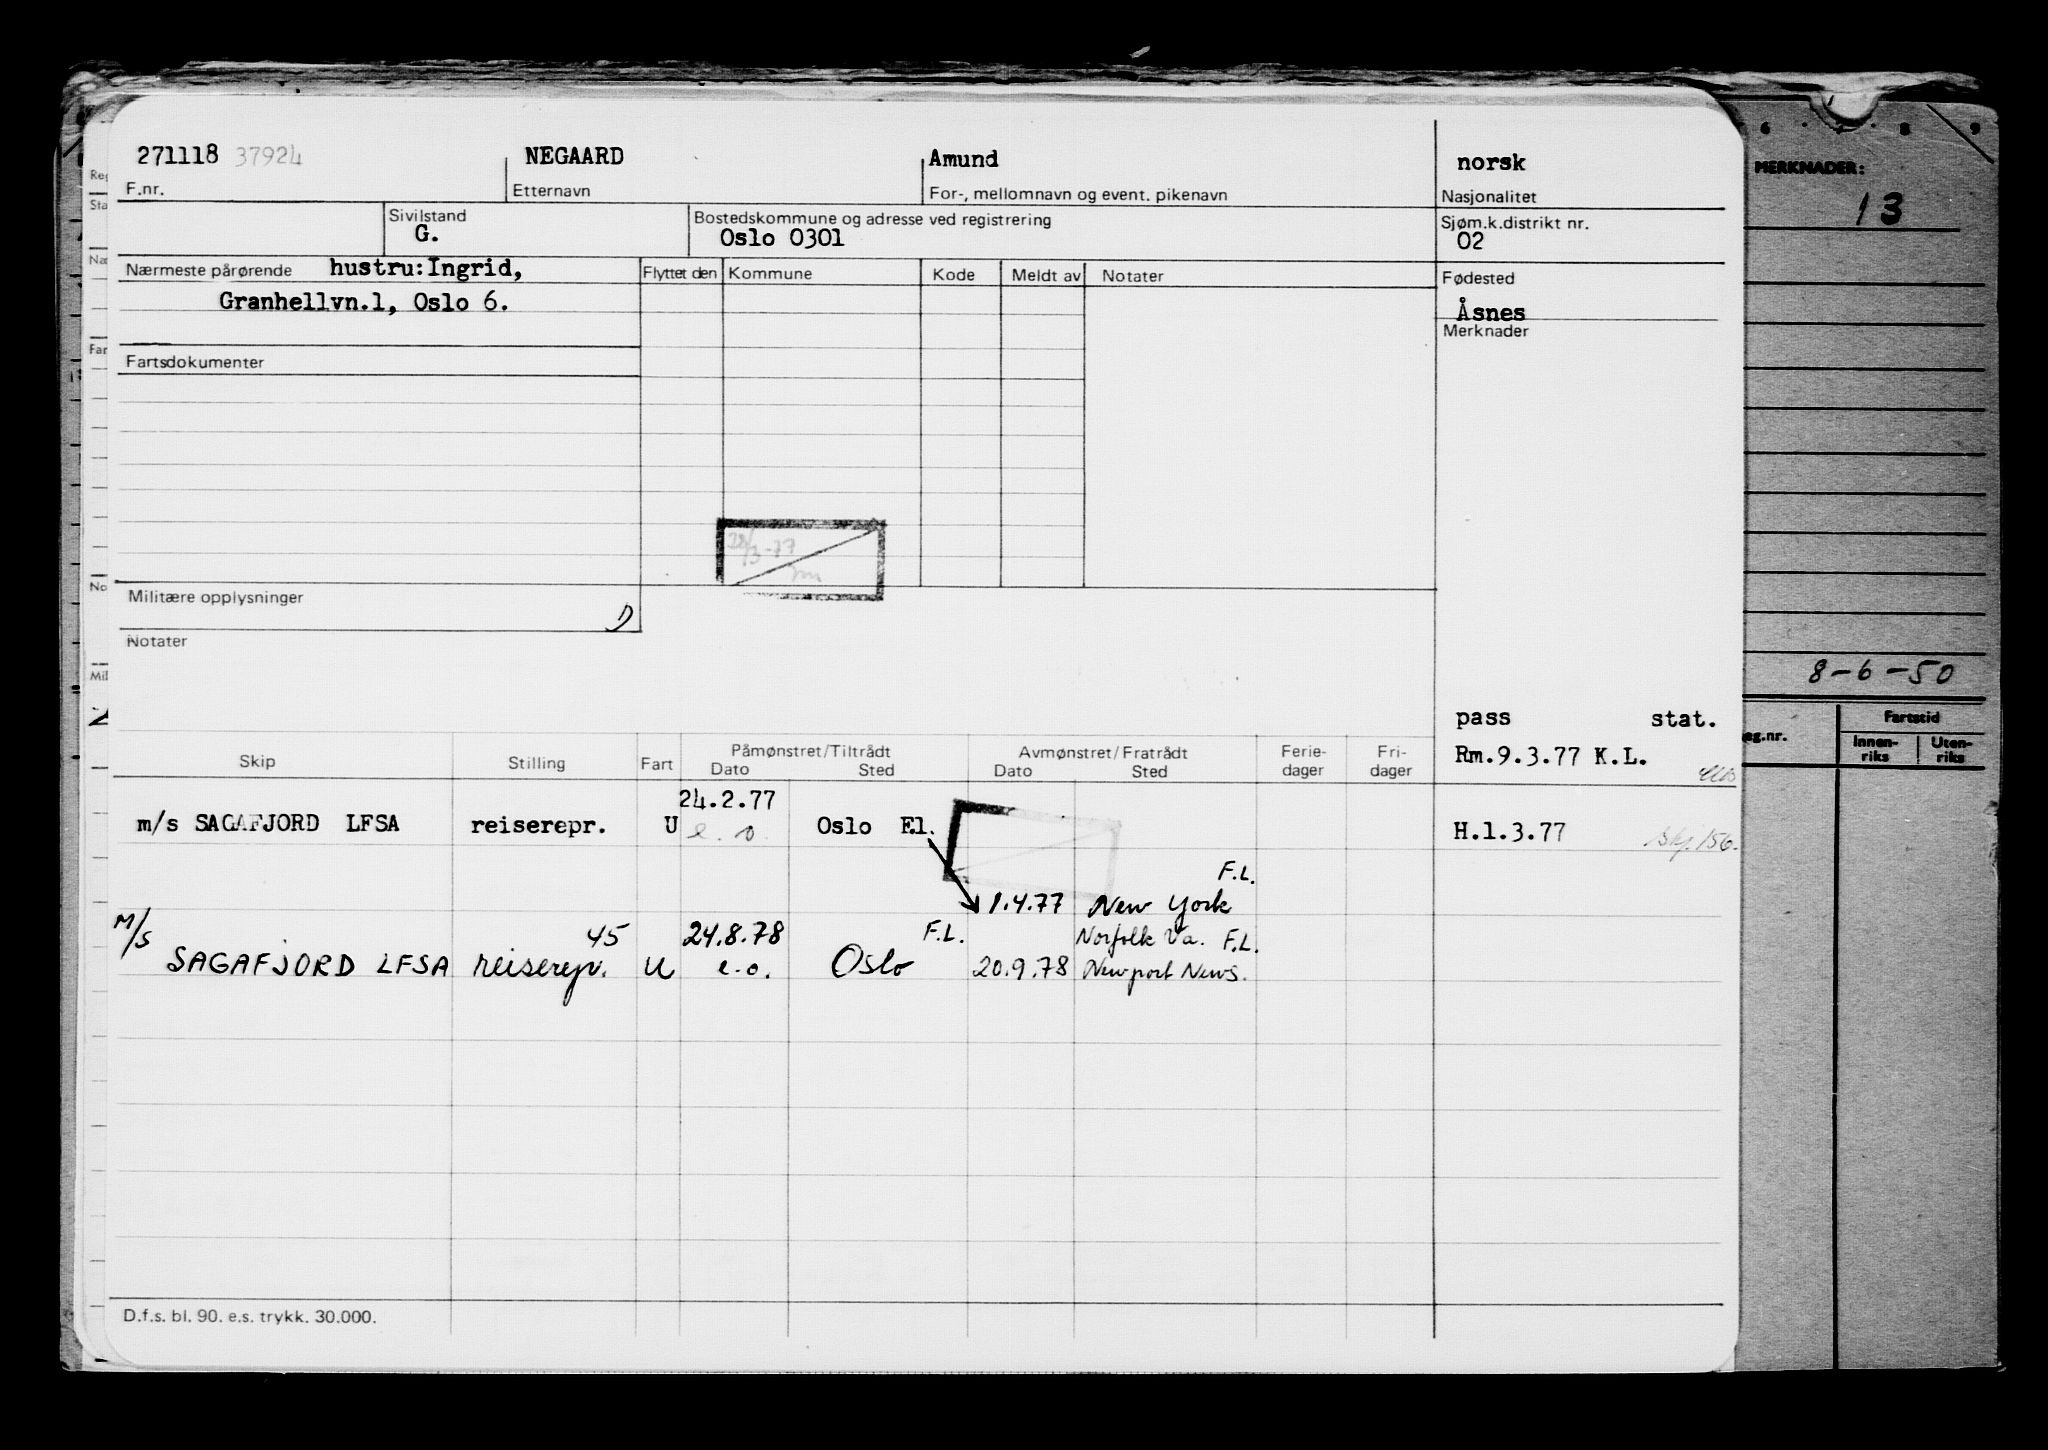 271118 37924 NEGAARD Amund norsk
F.nr. Etternavn For-, mellomnavn og event. pikenavn Nasjonalitet
Sivilstand Bostedskommune og adresse ved registrering Sjøm.k.distrikt nr.
G. Oslo 0301 02
Nærmeste pårørende hustru:Ingrid, Flyttet den Kommune Kode Meldt av Notater Fødested
Granhellvn.1, Oslo 6. Åsnes
Merknader
Fartsdokumenter
Militære opplysninger
Notater
pass stat.
Rm.9.3.77 K.L.
Skip Stilling Fart Påmønstret/Tiltrådt Avmønstret/Fratrådt Ferie- Fri-
Dato Sted Dato Sted dager dager
24.2.77
m/s SAGAFJORD LFSA reiserepr. U e.o. Oslo F.l. H.1.3.77
F.L.
1.4.77 New York
M/S 45 24.8.78 F.L. Norfolk Va. F.L.
SAGAFJORD LFSA reiserepr. U e.o. Oslo 20.9.78 Newport News.
D.f.s. bl. 90. e.s. trykk. 30.000.
6 8 9
MERKNADER:
13
8-6-50
Fartstid
eg.nr. Innen- Uten-
riks riks
Reg
Sta
Næ
Far
No
Mil